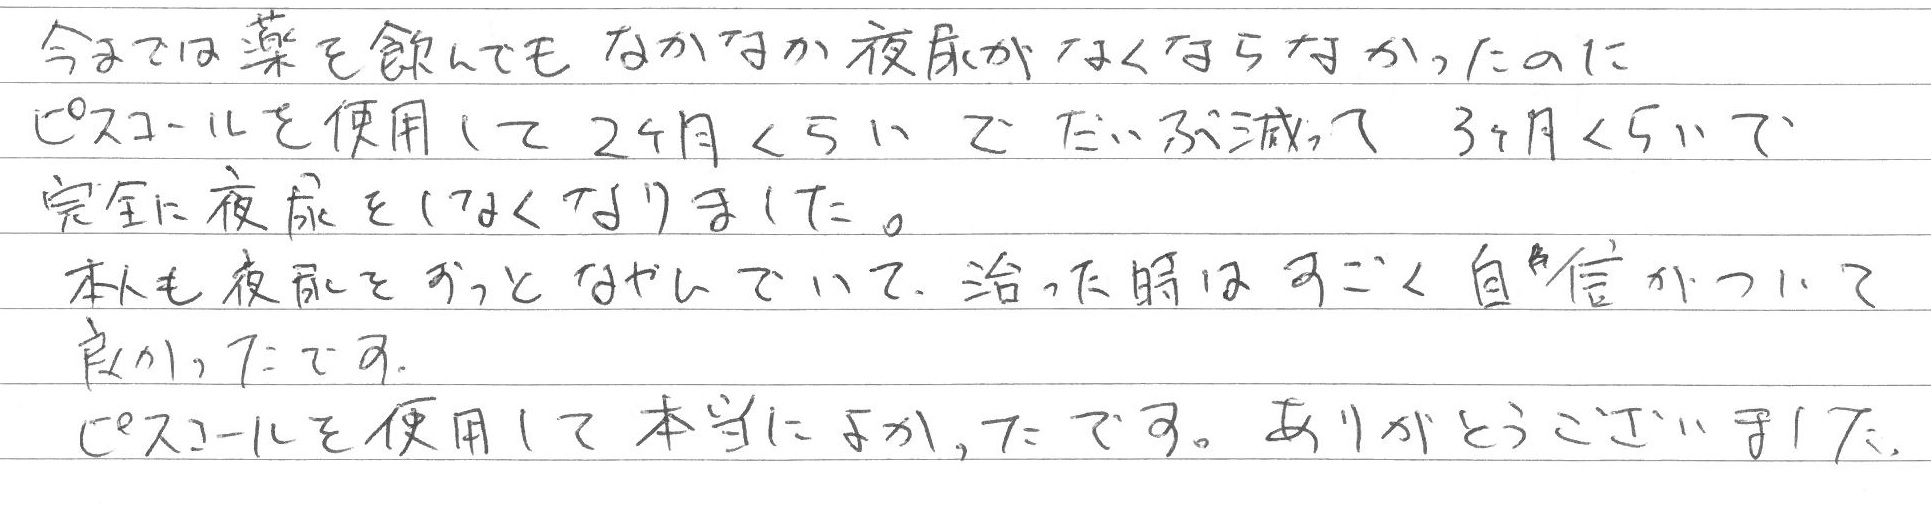 今までは薬を飲んでもなかなか夜尿がなくならなかったのに
ピスコールを使用して2ヶ月くらいでだいぶ減って 3ヶ月くらいで
完全に夜尿をしなくなりました。
本人も夜尿をずっとなやんでいて、治った時はすごく自信がついて
良かったです。
ピスコールを使用して本当によかったです。ありがとうございました。